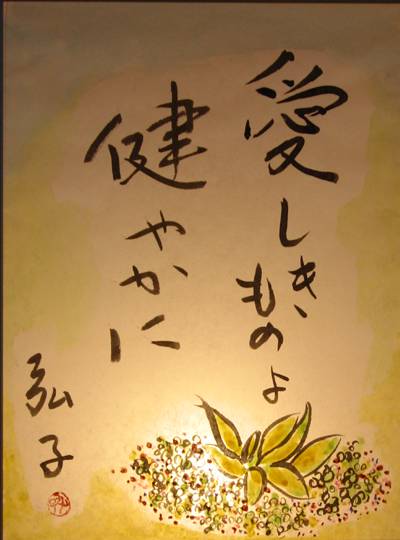 愛しきものよ
健やかに
弘子